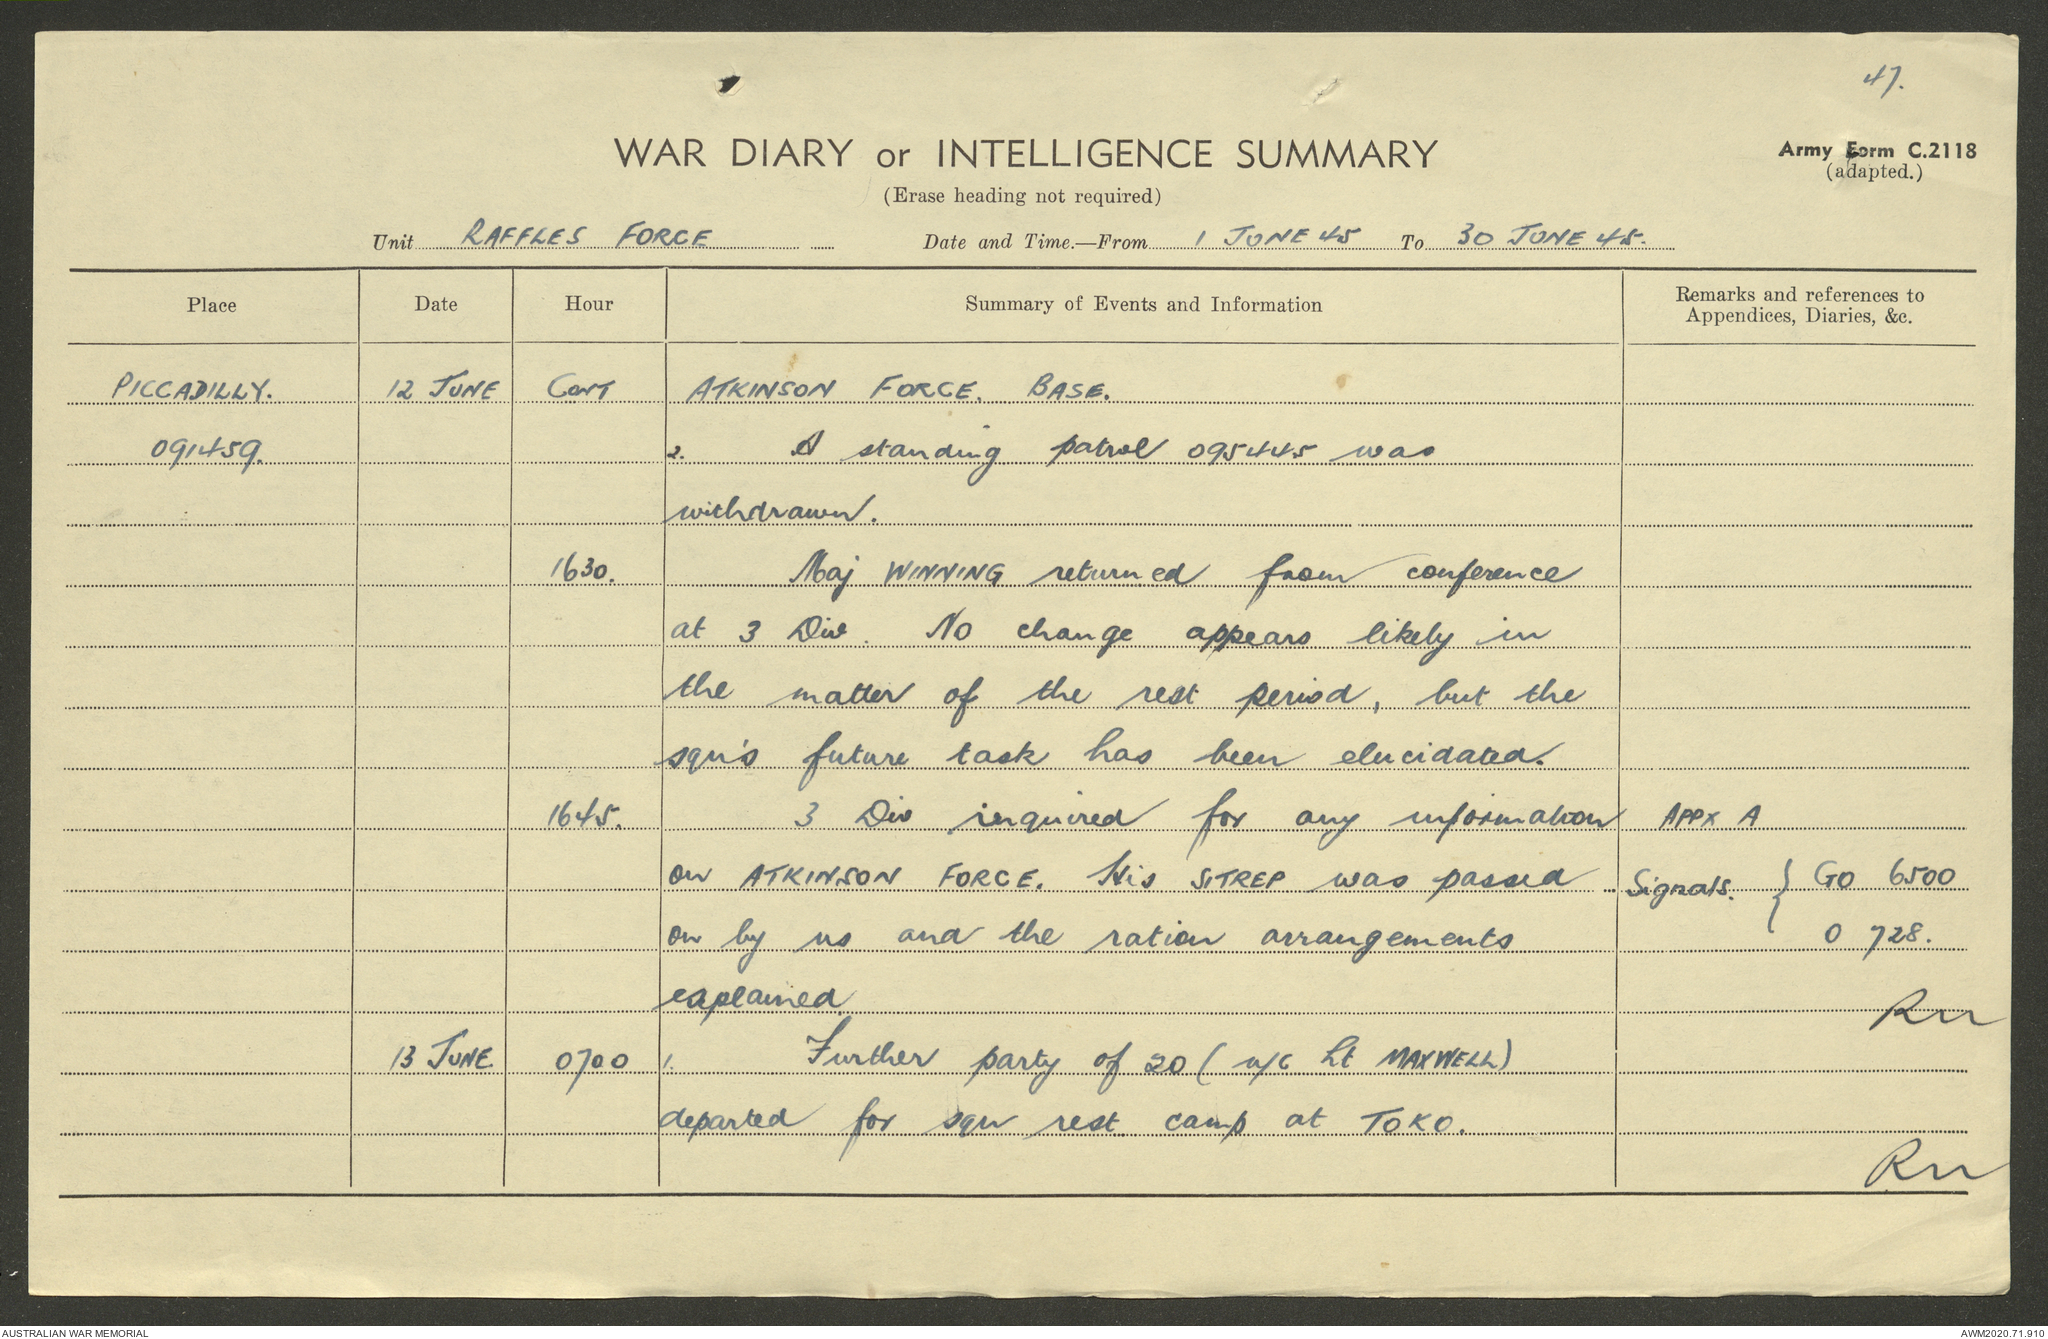 47.
WAR DIARY or INTELLIGENCE SUMMARY
Army Form C.2118
(adapted.)
(Erase heading not required)
Unit RAFFLES FORCE Date and Time.—From 1 JUNE 45 To 30 JUNE 45.
Place Date Hour Summary of Events and Information Remarks and references to
Appendices, Diaries, &c.
PICCADILLY. 12 JUNE CONT ATKINSON FORCE. BASE.
091459. 2. A standing patrol 095445 was
withdrawn.
1630. Maj WINNING returned from conference
at 3 Div. No change appears likely in
the matter of the rest period, but the
sqn's future task has been elucidated.
1645. 3 Div inquired for any information APPX A
on ATKINSON FORCE. His SITREP was passed Signals. { GO 6500
on by us and the ration arrangements O 728.
explained.
13 JUNE 0700 1. Further party of 20 (u/c Lt MAXWELL)
departed for sqn rest camp at TOKO.
AUSTRALIAN WAR MEMORIAL AWM2020.71.910